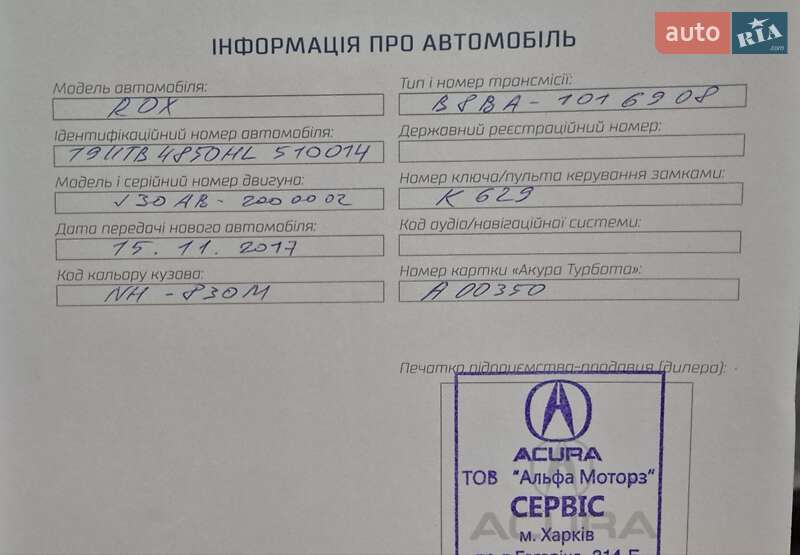 auto RIA.com
ІНФОРМАЦІЯ ПРО АВТОМОБІЛЬ
Модель автомобіля:
RDX
Ідентифікаційний номер автомобіля:
19UTB4850HL 510014
Модель і серійний номер двигуна:
J30AB - 2000002
Дата передачі нового автомобіля:
15.11.2017
Код кольору кузова:
NH - 830M
Тип і номер трансмісії:
B8BA - 1016908
Державний реєстраційний номер:
Номер ключа/пульта керування замками:
K 629
Код аудіо/навігаційної системи:
Номер картки «Акура Турбота»:
A 00350
Печатка підприємства-продавця (дилера):
ACURA
ТОВ "Альфа Моторз"
СЕРВІС
ACURA
м. Харків